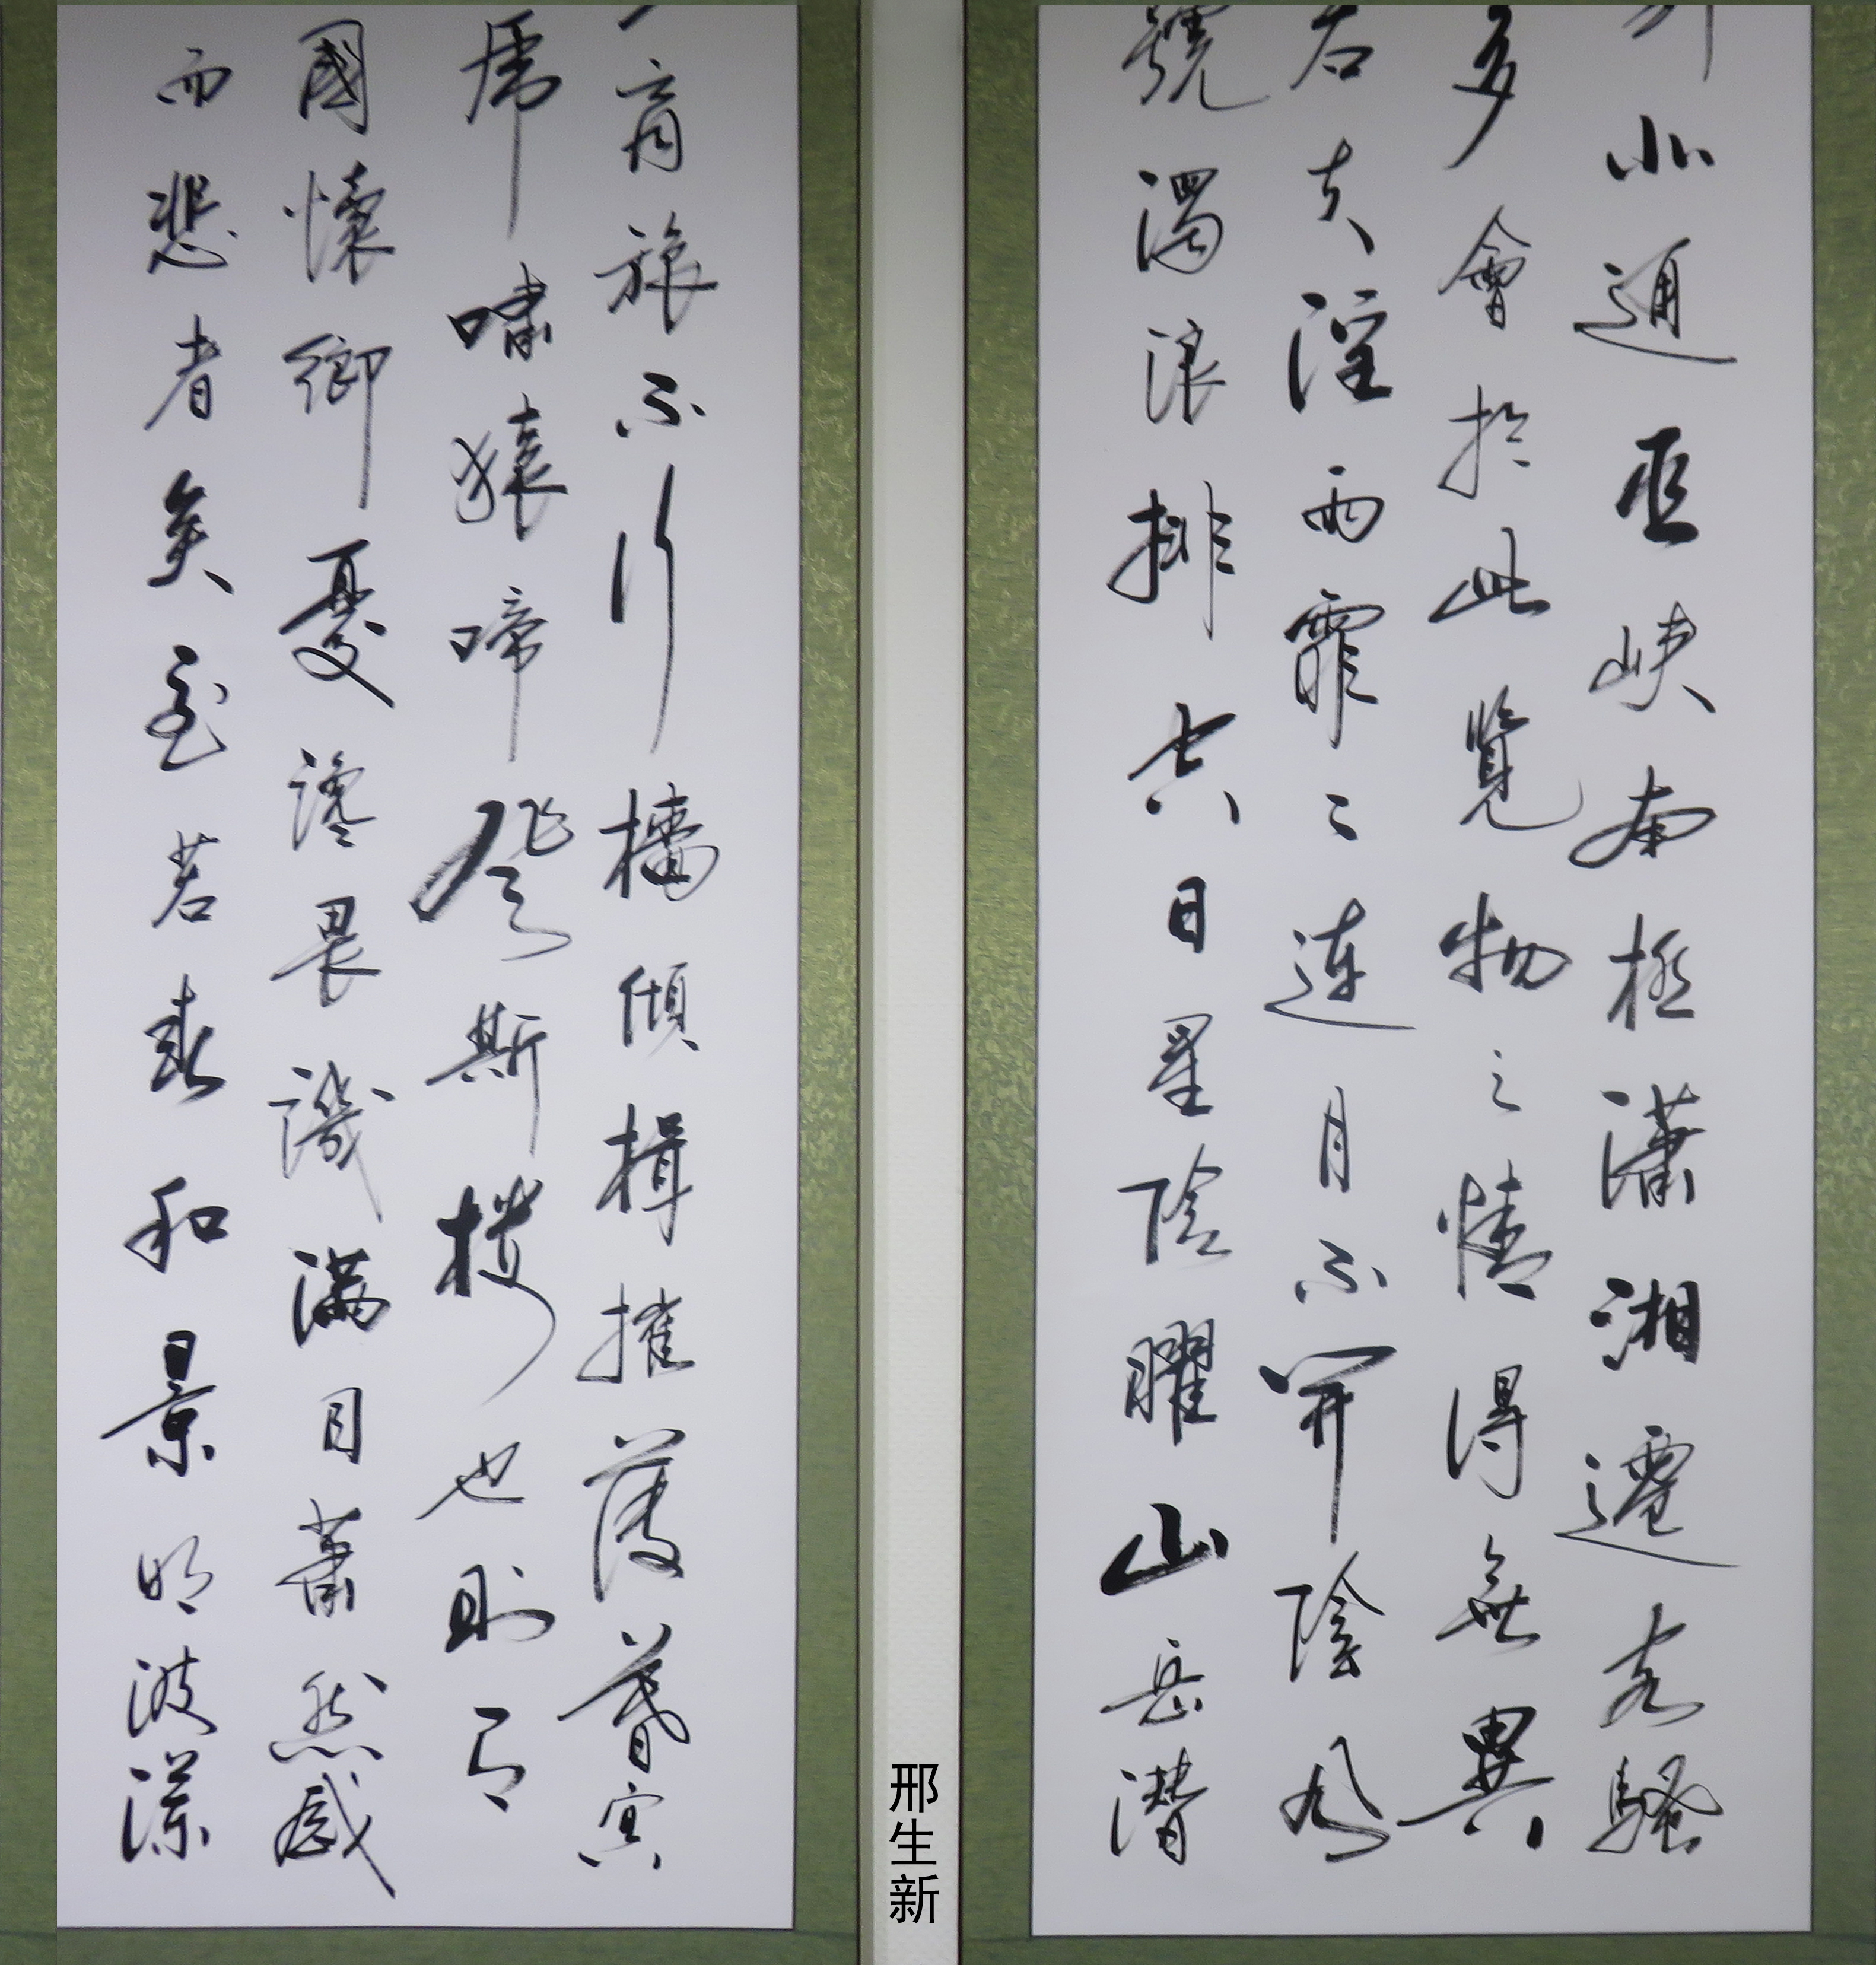 北通巫峽南極瀟湘遷客騷
多會於此覽物之情得無異
若夫淫雨霏〻連月不開陰風
號濁浪排空日星隱曜山岳潛
商旅不行檣傾楫摧薄暮冥
虎嘯猿啼登斯樓也則有
國懷鄉憂讒畏譏滿目蕭然感
而悲者矣至若春和景明波瀾
邢生新